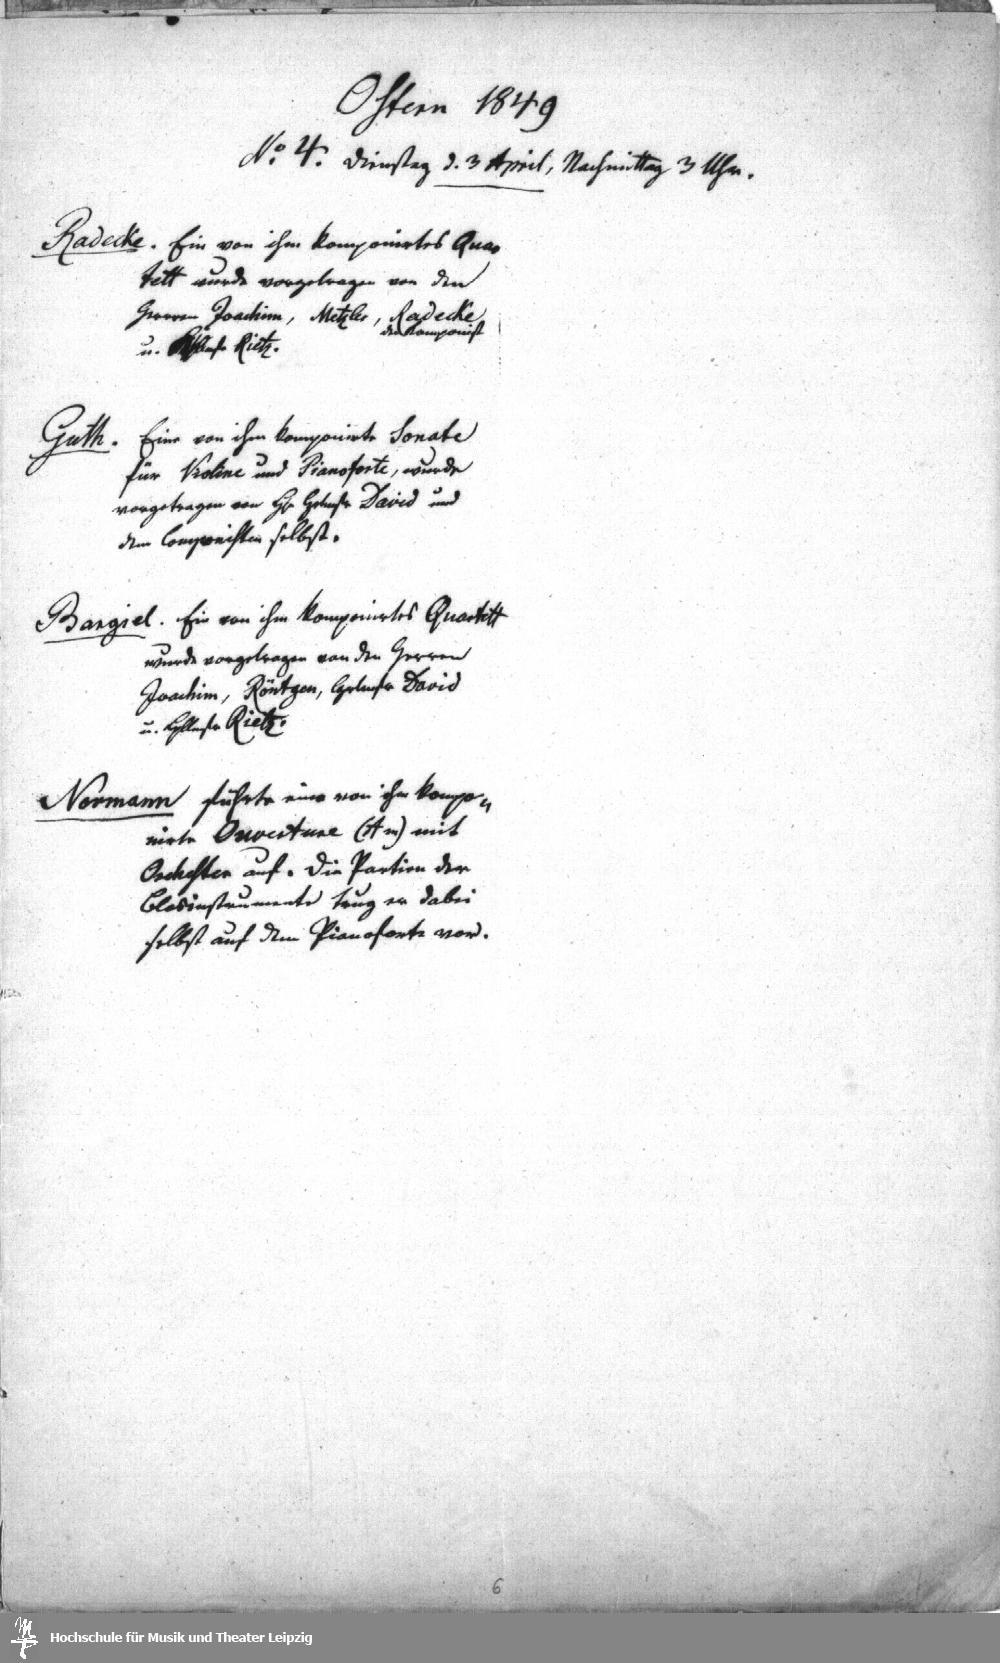 Ostern 1849
No. 4. Dienstag d. 3 April, Nachmittag 3 Uhr.
Radecke. Ein von ihm komponirtes Quar
tett wurde vorgetragen von den
Herren Joachim, Metzler, Radecke
dem Komponist
u. Rietz.
Guth. Eine von ihm komponirte Sonate
für Violine und Pianoforte, wurde
vorgetragen von Hr David und
dem Componisten selbst.
Bargiel. Ein von ihm komponirtes Quartett
wurde vorgetragen von den Herren
Joachim, Röntgen, David
u. Rietz.
Normann führte eine von ihm kompo„
nirte Ouverture (Am) mit
Orchester auf. Die Partien der
Blasinstrumente trug er dabei
selbst auf dem Pianoforte vor.
6
Hochschule für Musik und Theater Leipzig